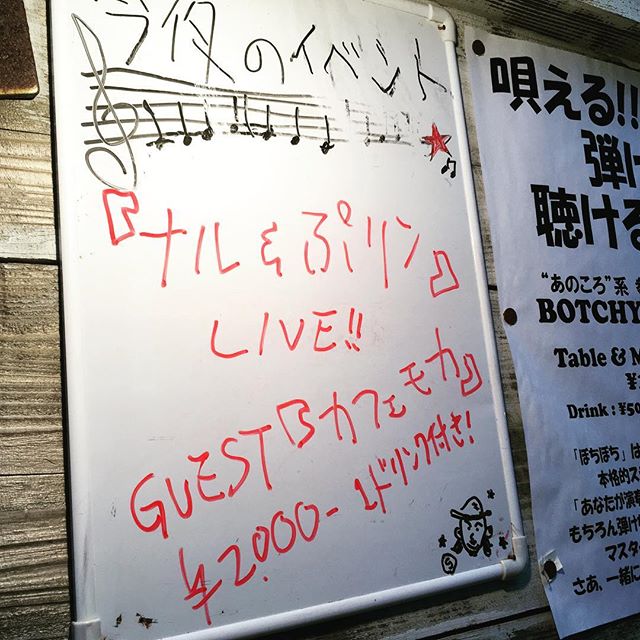 今夜のイベント
『ナル&ぷリン』
LIVE!!
GUEST『カフェモカ』
¥2,000- 1ドリンク付き!
唄える!!
弾け
聴ける
"あのころ"系
BOTCHY
Table & M
Drink : ¥50
「ぼちぼち」は
本格的ス
「あなたが演
もちろん弾け
マスタ
さあ、一緒に